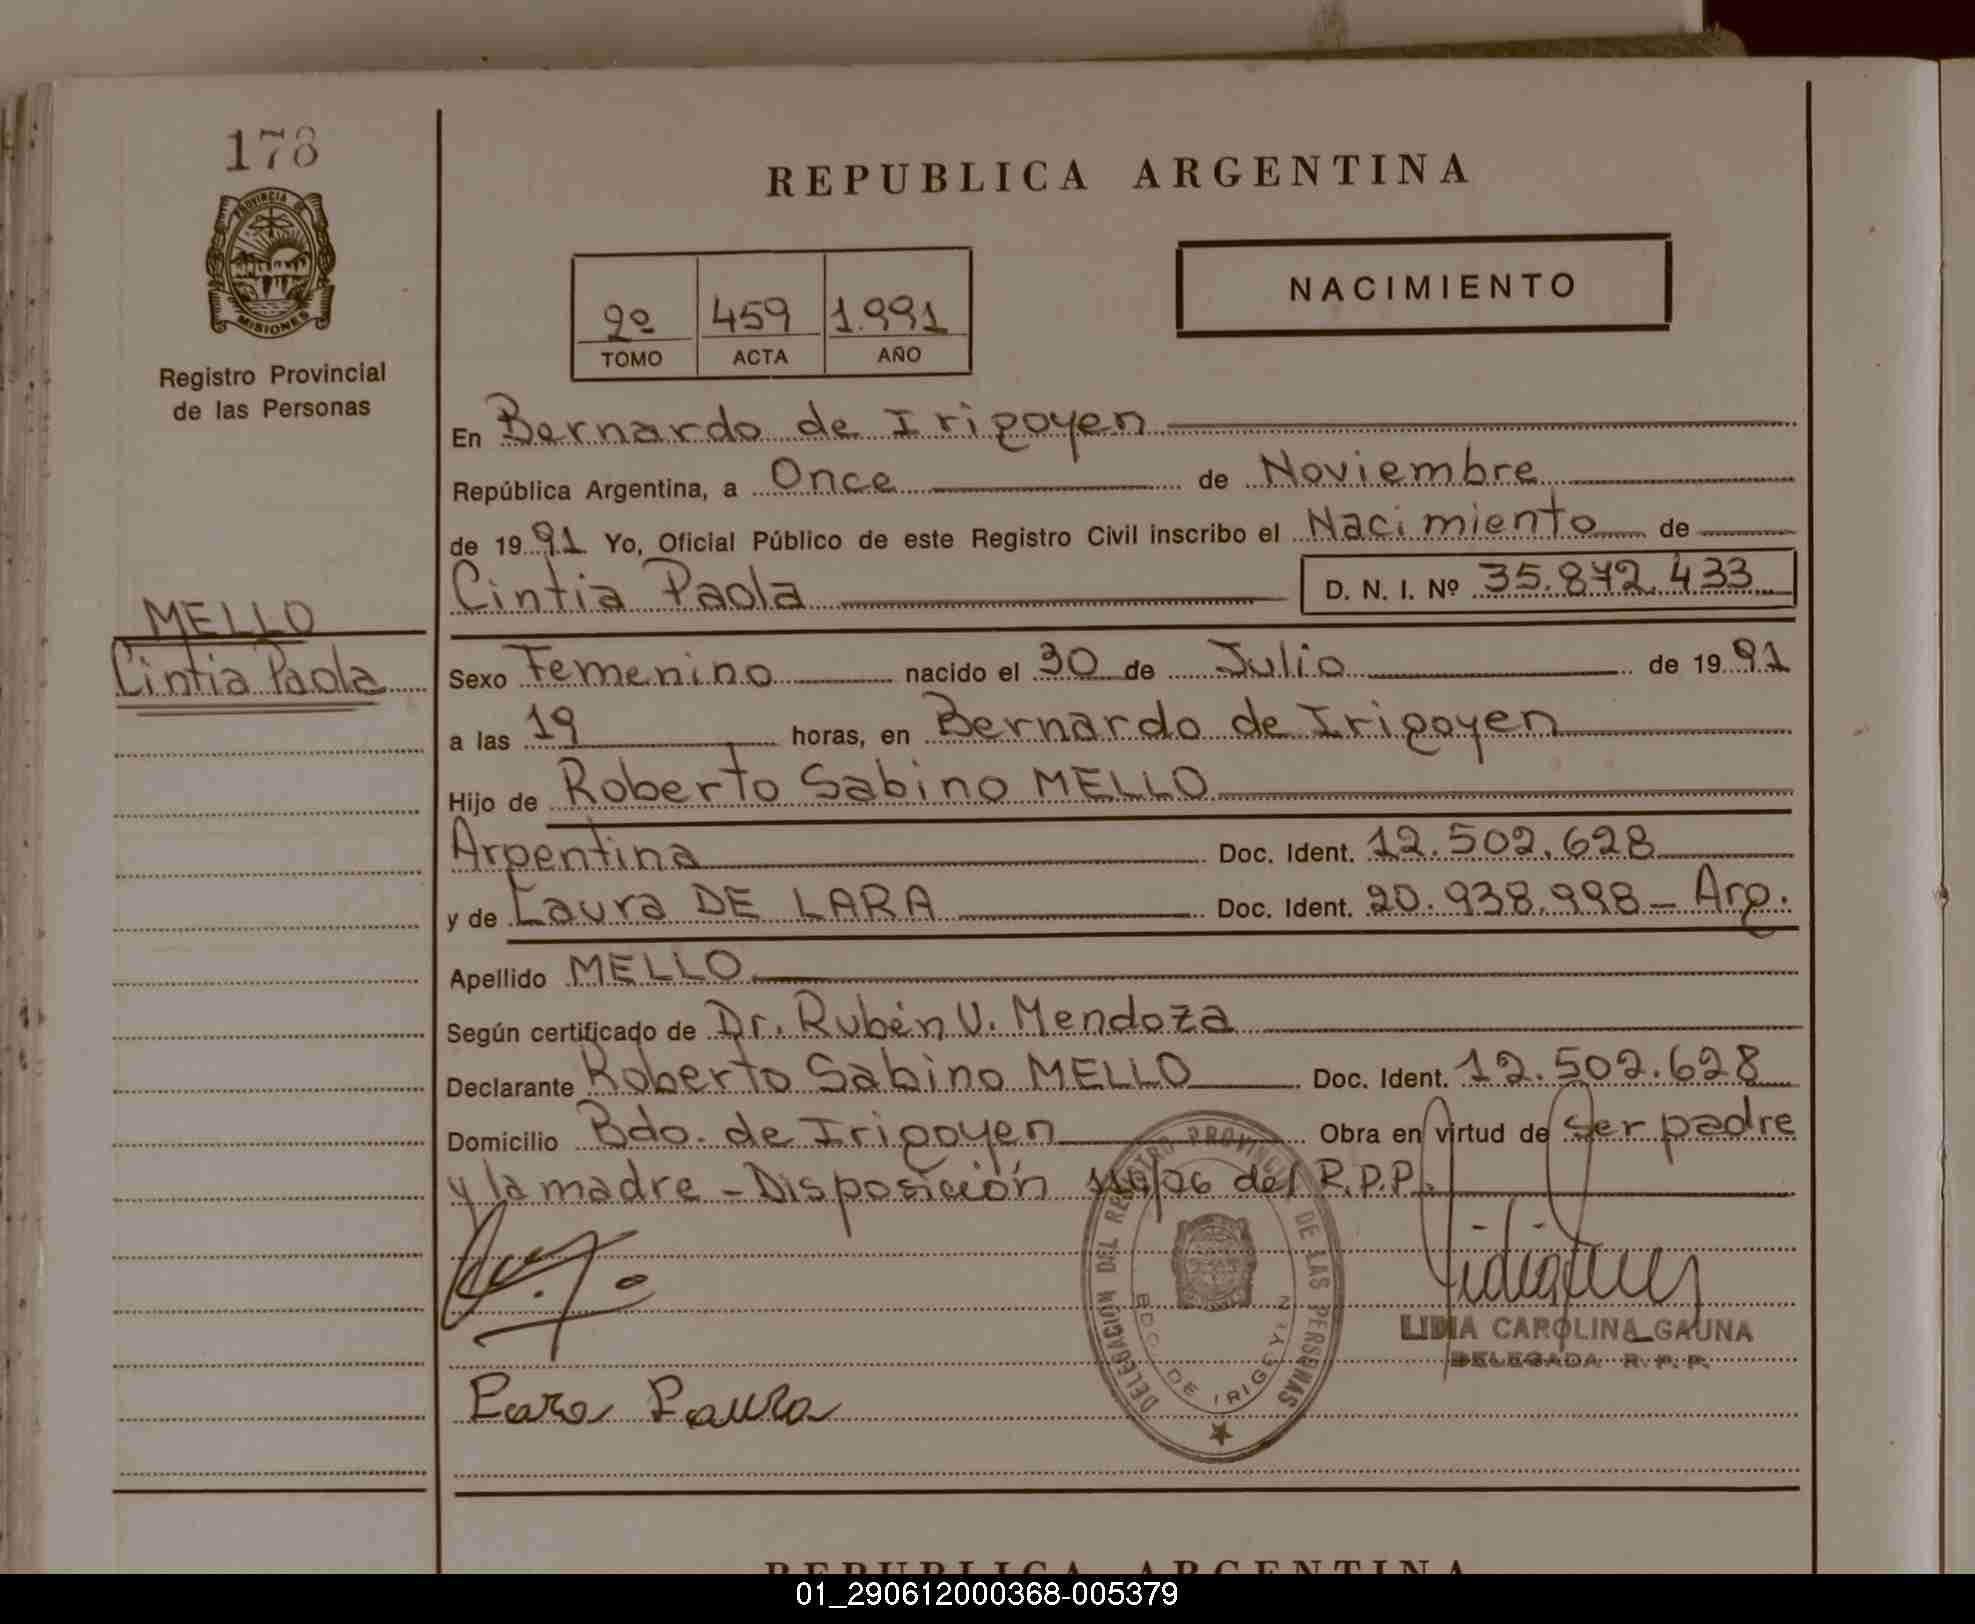 178
PROVINCIA DE
MISIONES
Registro Provincial
de las Personas
MELLO
Cintia Paola
REPUBLICA ARGENTINA
2º 459 1.991
TOMO ACTA AÑO
NACIMIENTO
En Bernardo de Irigoyen
República Argentina, a Once de Noviembre
de 1991 Yo, Oficial Público de este Registro Civil inscribo el Nacimiento de
Cintia Paola D. N. I. Nº 35.872.433
Sexo Femenino nacido el 30 de Julio de 1991
a las 19 horas, en Bernardo de Irigoyen
Hijo de Roberto Sabino MELLO
Argentina Doc. Ident. 12.502.628
y de Laura DE LARA Doc. Ident. 20.938.998 - Arg.
Apellido MELLO
Según certificado de Dr. Rubén V. Mendoza
Declarante Roberto Sabino MELLO Doc. Ident. 12.502.628
Domicilio Bdo. de Irigoyen Obra en virtud de Ser padre
y la madre - Disposición del R.P.P.
DELEGACION DEL REGISTRO PROVINCIAL DE LAS PERSONAS
BDO. DE IRIGOYEN
LIDIA CAROLINA GAUNA
DELEGADA R. P. P.
Lara Laura
REPUBLICA ARGENTINA
01_290612000368-005379